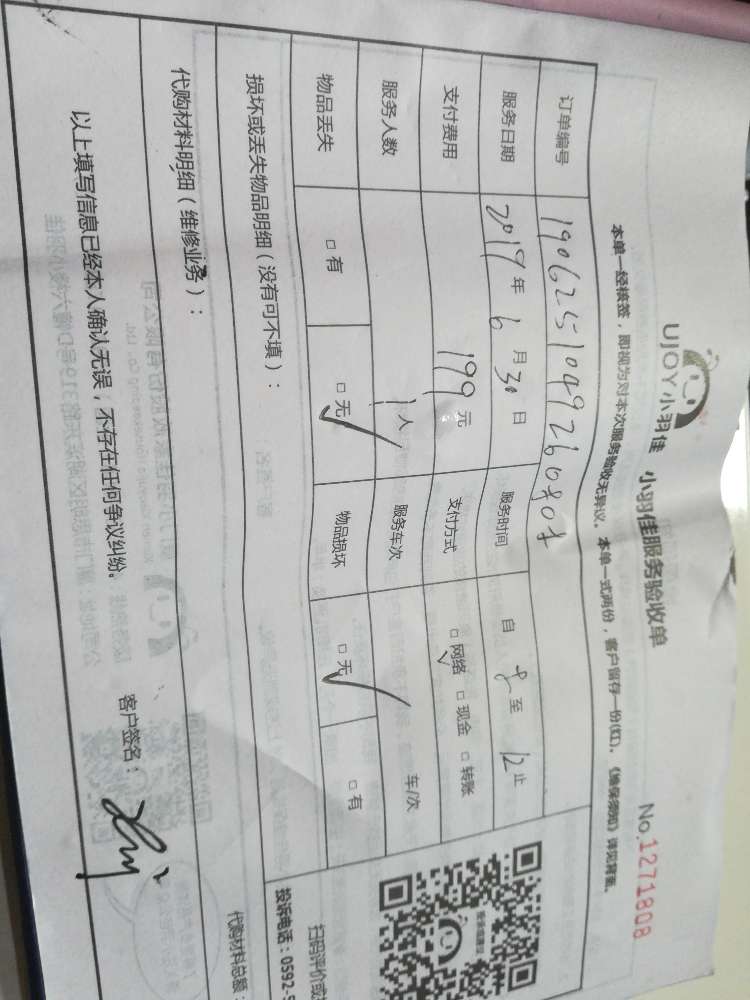 UJOY小羽佳 小羽佳服务验收单 No.1271808
本单一经核签，即视为对本次服务验收无异议。本单一式两份，客户留存一份(红)。《维保须知》详见背面。
订单编号 1906251049260808
服务日期 2019年6月30日 服务时间 自 8 至 12 止
支付费用 199元 支付方式 □网络✓ □现金 □转账
服务人数 1人 服务车次 车/次
物品丢失 □有 □无✓ 物品损坏 □无✓ □有
损坏或丢失物品明细（没有可不填）：
扫码评价或
投诉电话：0592-5
代购材料明细（维修业务）： 代购材料总额：
以上填写信息已经本人确认无误，不存在任何争议纠纷。 客户签名：